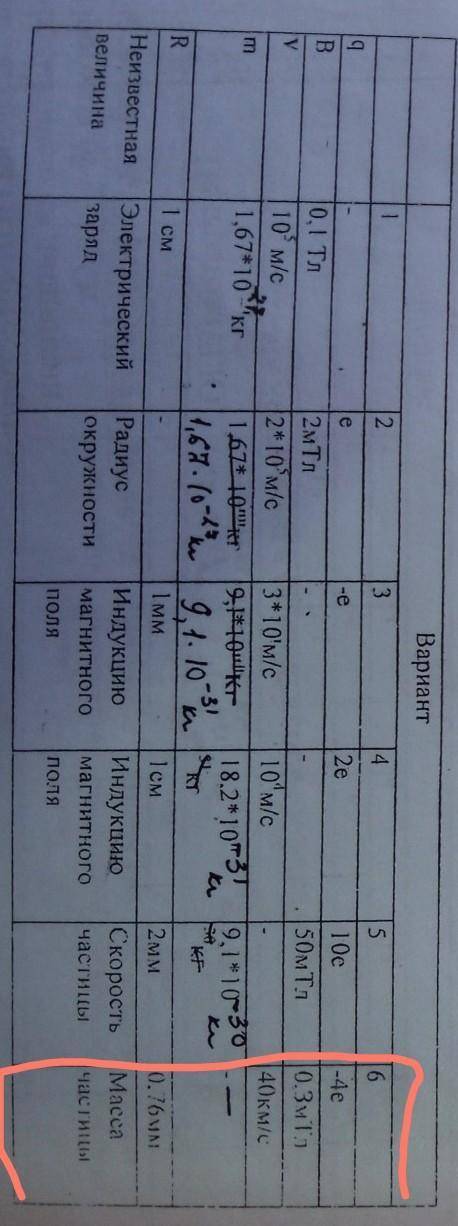 Вариант
1 2 3 4 5 6
q - e -e 2e 10e -4e
B 0,1 Тл 2мТл - - 50мТл 0.3мТл
v 10⁵ м/с 2*10⁵м/с 3*10¹м/с 10⁴м/с - 40км/с
m 1,67*10⁻²⁷ кг 1,67*10 кг 9,1*10 кг 18.2*10⁻³¹ кг 9,1*10⁻³⁰ кг -
1,67·10⁻²⁷ кг 9,1·10⁻³¹ кг
R 1 см - 1мм 1см 2мм 0.76мм
Неизвестная Электрический Радиус Индукцию Индукцию Скорость Масса
величина заряд окружности магнитного магнитного частицы частицы
поля поля